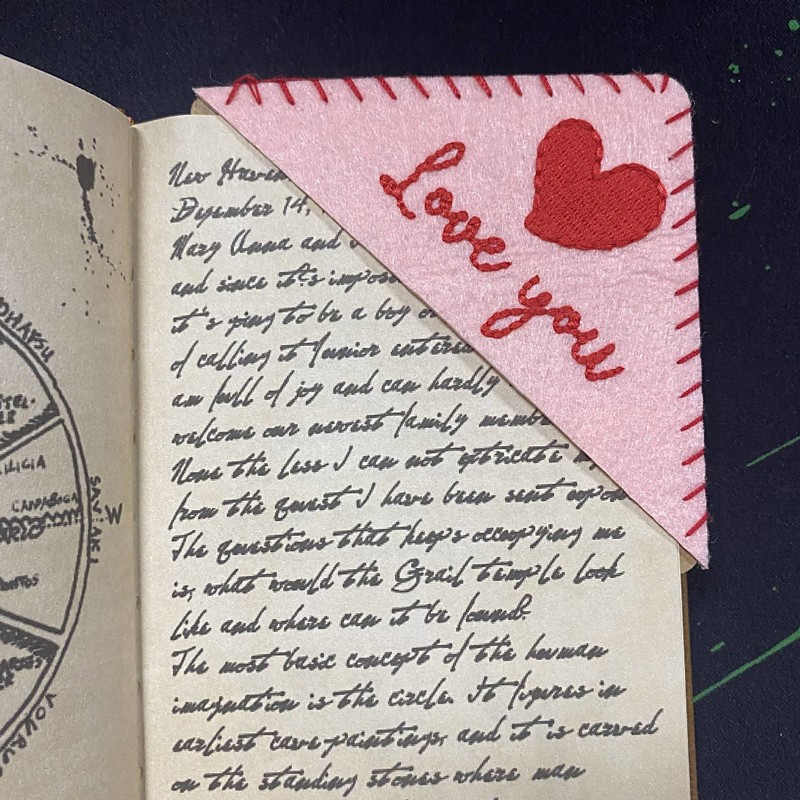 OHAFSU
CAPPADOCIA
SAN AKI
W
love you
New Haven
Desember 14,
Mary Anna and
and since it's impos
it's going to be a boy or
of calling it Junior intered
am full of joy and can hardly
welcome our newest family membe
None the less I can not extricate my
from the quest I have been sent upon
The questions that keeps occupying me
is, what would the Grail temple look
like and where can it be found?
The most basic concept of the human
imagination is the circle. It figures in
earliest cave paintings, and it is carved
on the standing stones where man